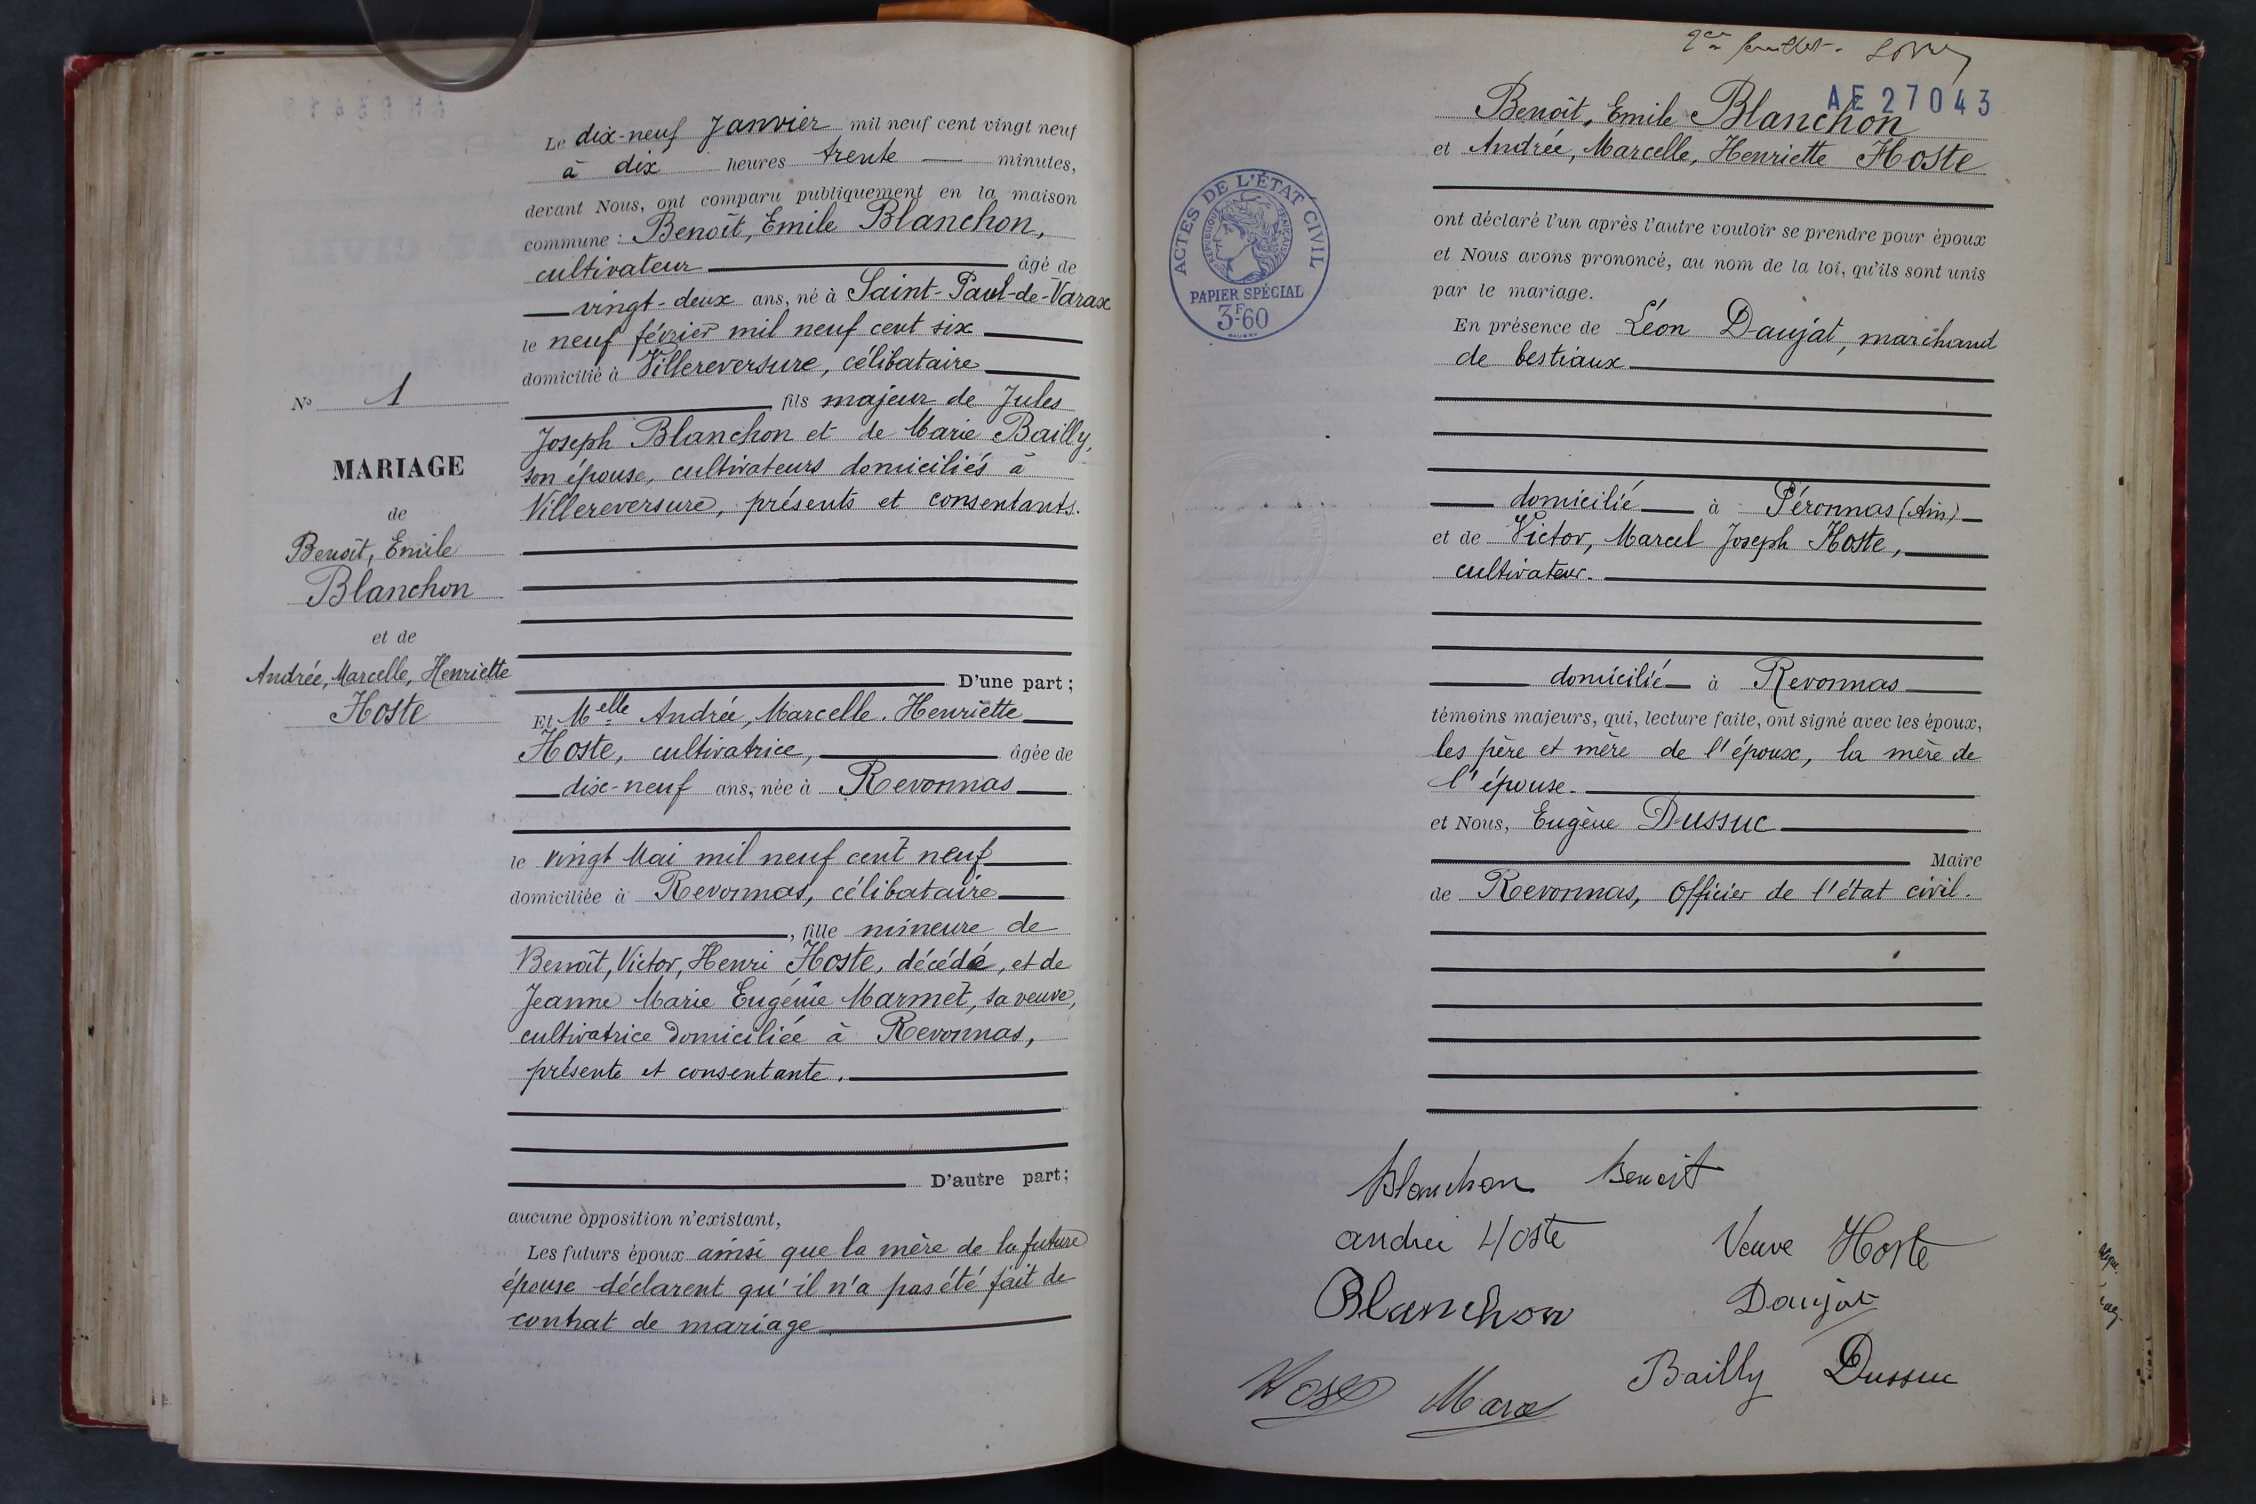 N° 1
MARIAGE
de
Benoît, Emile
Blanchon
et de
Andrée, Marcelle, Henriette
Hoste
Le dix-neuf Janvier mil neuf cent vingt neuf
à dix heures trente minutes,
devant Nous, ont comparu publiquement en la maison
commune : Benoît, Emile Blanchon,
cultivateur âgé de
vingt-deux ans, né à Saint-Paul-de-Varax
le neuf février mil neuf cent six
domicilié à Villereversure, célibataire
fils majeur de Jules
Joseph Blanchon et de Marie Bailly,
son épouse, cultivateurs domiciliés à
Villereversure, présents et consentants.
D'une part ;
Et Melle Andrée, Marcelle, Henriette
Hoste, cultivatrice, âgée de
dix-neuf ans, née à Revonnas
le vingt Mai mil neuf cent neuf
domiciliée à Revonnas, célibataire
, fille mineure de
Benoît, Victor, Henri Hoste, décédé, et de
Jeanne Marie Eugénie Marmet, sa veuve,
cultivatrice domiciliée à Revonnas,
présente et consentante.
D'autre part ;
aucune opposition n'existant,
Les futurs époux ainsi que la mère de la future
épouse déclarent qu'il n'a pas été fait de
contrat de mariage
2me feuillet.
AE 27043
ACTES DE L'ÉTAT CIVIL
RÉPUBLIQUE FRANÇAISE
PAPIER SPÉCIAL
3F60
Benoît, Emile Blanchon
et Andrée, Marcelle, Henriette Hoste
ont déclaré l'un après l'autre vouloir se prendre pour époux
et Nous avons prononcé, au nom de la loi, qu'ils sont unis
par le mariage.
En présence de Léon Daujat, marchand
de bestiaux
domicilié à Péronnas (Ain)
et de Victor, Marcel Joseph Hoste,
cultivateur.
domicilié à Revonnas
témoins majeurs, qui, lecture faite, ont signé avec les époux,
les père et mère de l'époux, la mère de
l'épouse.
et Nous, Eugène Dussuc
Maire
de Revonnas, Officier de l'état civil.
Blanchon Benoit
andrée Hoste Veuve Hoste
Blanchon Daujat
Hoste Marcel Bailly Dussuc